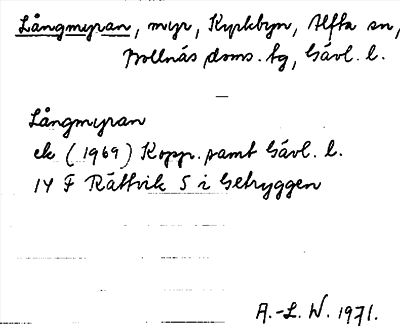 Långmyran, myr, Kyrkbyn, Alfta sn,
Bollnäs doms. tg, Gävl. l.
—
Långmyran
ek (1969) Kopp. samt Gävl. l.
14 F Rättvik S i Getryggen
A.-L. W. 1971.